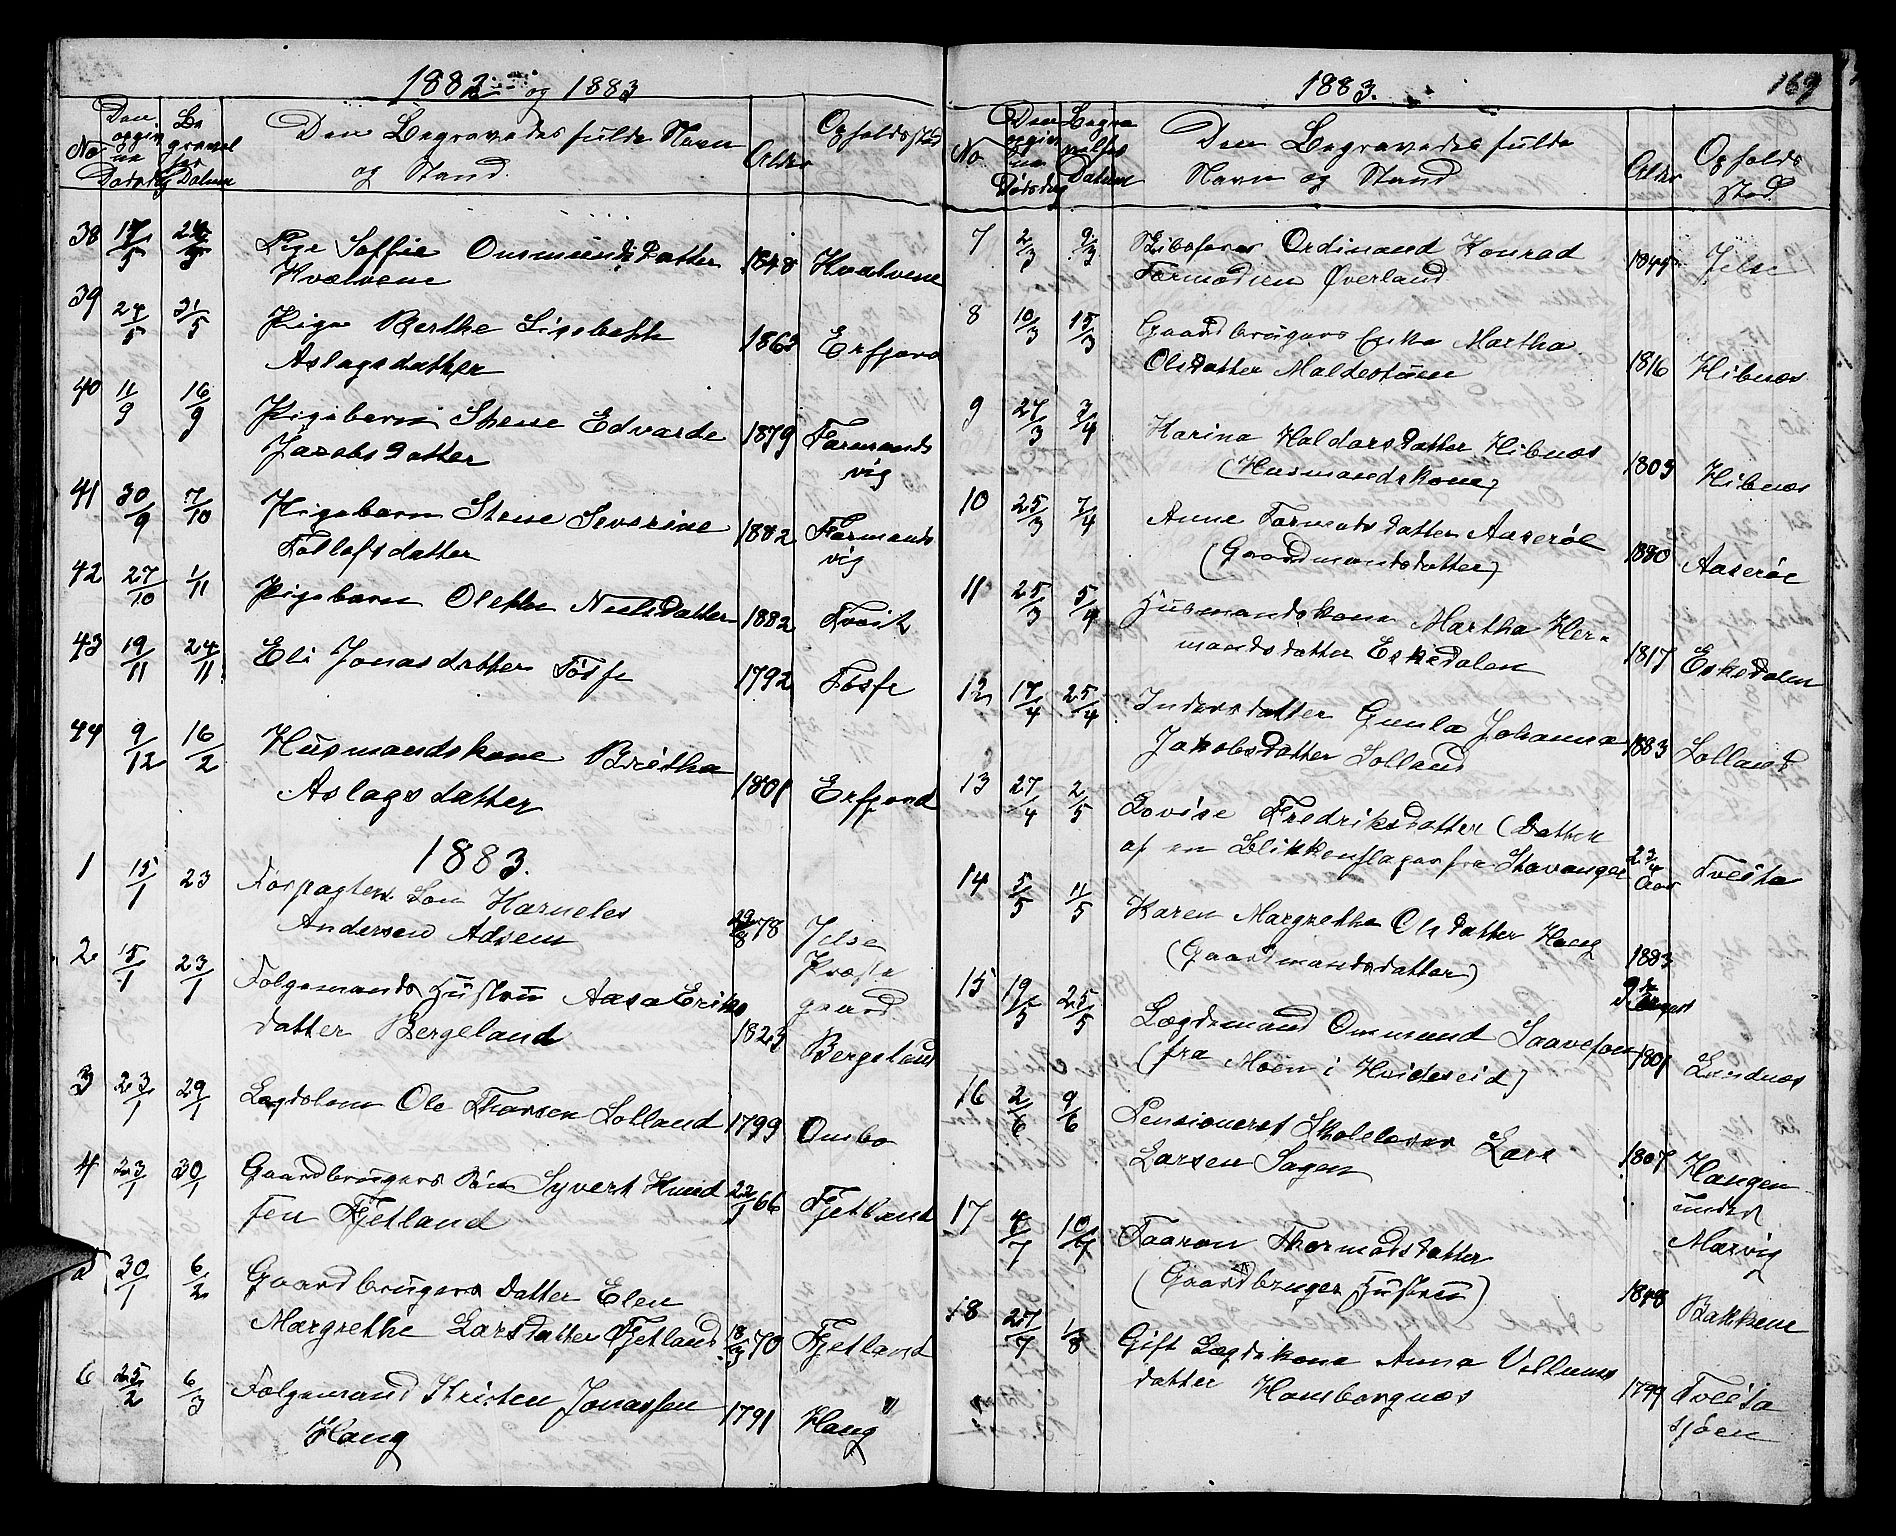 1882 og 1883
No
Den opgivne Dødsdag
Begravelses Datum
Den Begravedes fulde Navn
og Stand.
Alder
Opholdssted
38 17/5 24/5 Pige Soffie Onsmundsdatter 1848 Kvalvene
Kvalvene
39 24/5 31/5 Pige Berthe Lisebeth
Aslagsdatter 1863 Erfjord
40 11/9 16/9 Pigebarn Stene Edvarde 1879 Formands
Jacobsdatter vig
41 30/9 7/10 Pigebarn Stene Severine 1882 Formands
Tollefsdatter vig
42 27/10 1/11 Pigebarn Olette Neelsdatter 1882 Tveit
43 19/11 24/11 Eli Jonasdatter Fosse 1792 Fosse
44 9/12 16/2 Husmandskone Britha
Aslagsdatter 1801 Erfjord
1883.
1 15/1 23 Forpagters Søn Karneles
Andersen Adsem 29/8 78 Jelse
Præste
gaard
2 15/1 23/1 Følgemands Hustru Aasa Eriks
datter Bergeland 1823 Bergeland
3 23/1 29/1 Lægdslem Ole Thorsen Lolland 1799 Ombo
4 23/1 30/1 Gaardbrugers Søn Syvert Knud 22/1 66 Fjetland
sen Fjetland
5 30/1 6/2 Gaardbrugers datter Elen
Margrethe Larsdatter Fjetland 18/3 70 Fjetland
6 25/2 6/3 Følgemand Kristen Jonassen 1791 Haug "
Haug
1883.
169
No
Den opgivne Dødsdag
Begravelses Datum
Den Begravedes fulde
Navn og Stand
Alder
Opholds
sted
7 2/3 9/3 Ordinand Konrad 1844 Jelse
Tormodsen Øverland
8 10/3 15/3 Gaardbrugers Enke Martha
Olsdatter Maldestuen 1816 Hibnæs
9 27/3 3/4 Karina Haldorsdatter Hibnæs
(Husmandskone) 1803 Hibnæs
10 25/3 7/4 Anne Tormodsdatter Aaserøe
(Gaardmandsdatter) 1880 Aaserøe
11 25/3 5/4 Husmandskone Martha Her-
mandsdatter Eskedalen 1817 Eskedalen
12 17/4 25/4 Inderstdatter Gunla Johanna
Jakobsdatter Lolland 1883 Lolland
13 27/4 2/5 Lovise Fredriksdatter (Datter
af en Blikkenslager fra Stavanger 2 3/4 Aar Tveita
14 5/5 11/5 Karen Margrethe Olsdatter Haug
(Gaardmandsdatter) 1883
15 19/5 25/5 Lægdsmand Ommund Saavesen 1801 Lindnæs
(fra Moen i Hvideseid)
16 2/6 9/6 Pensioneret Skolelærer Lars
Larsen Sagen 1807 Haugen
under
Marvig
17 4/7 10/7 Taaron Thormodsdatter
(Gaardbruger Hustru) 1848 Bakkene
18 27/7 1/8 Gift Lægdskone Anna Villums
datter Hamborgnæs 1799 Tveita
sjøen